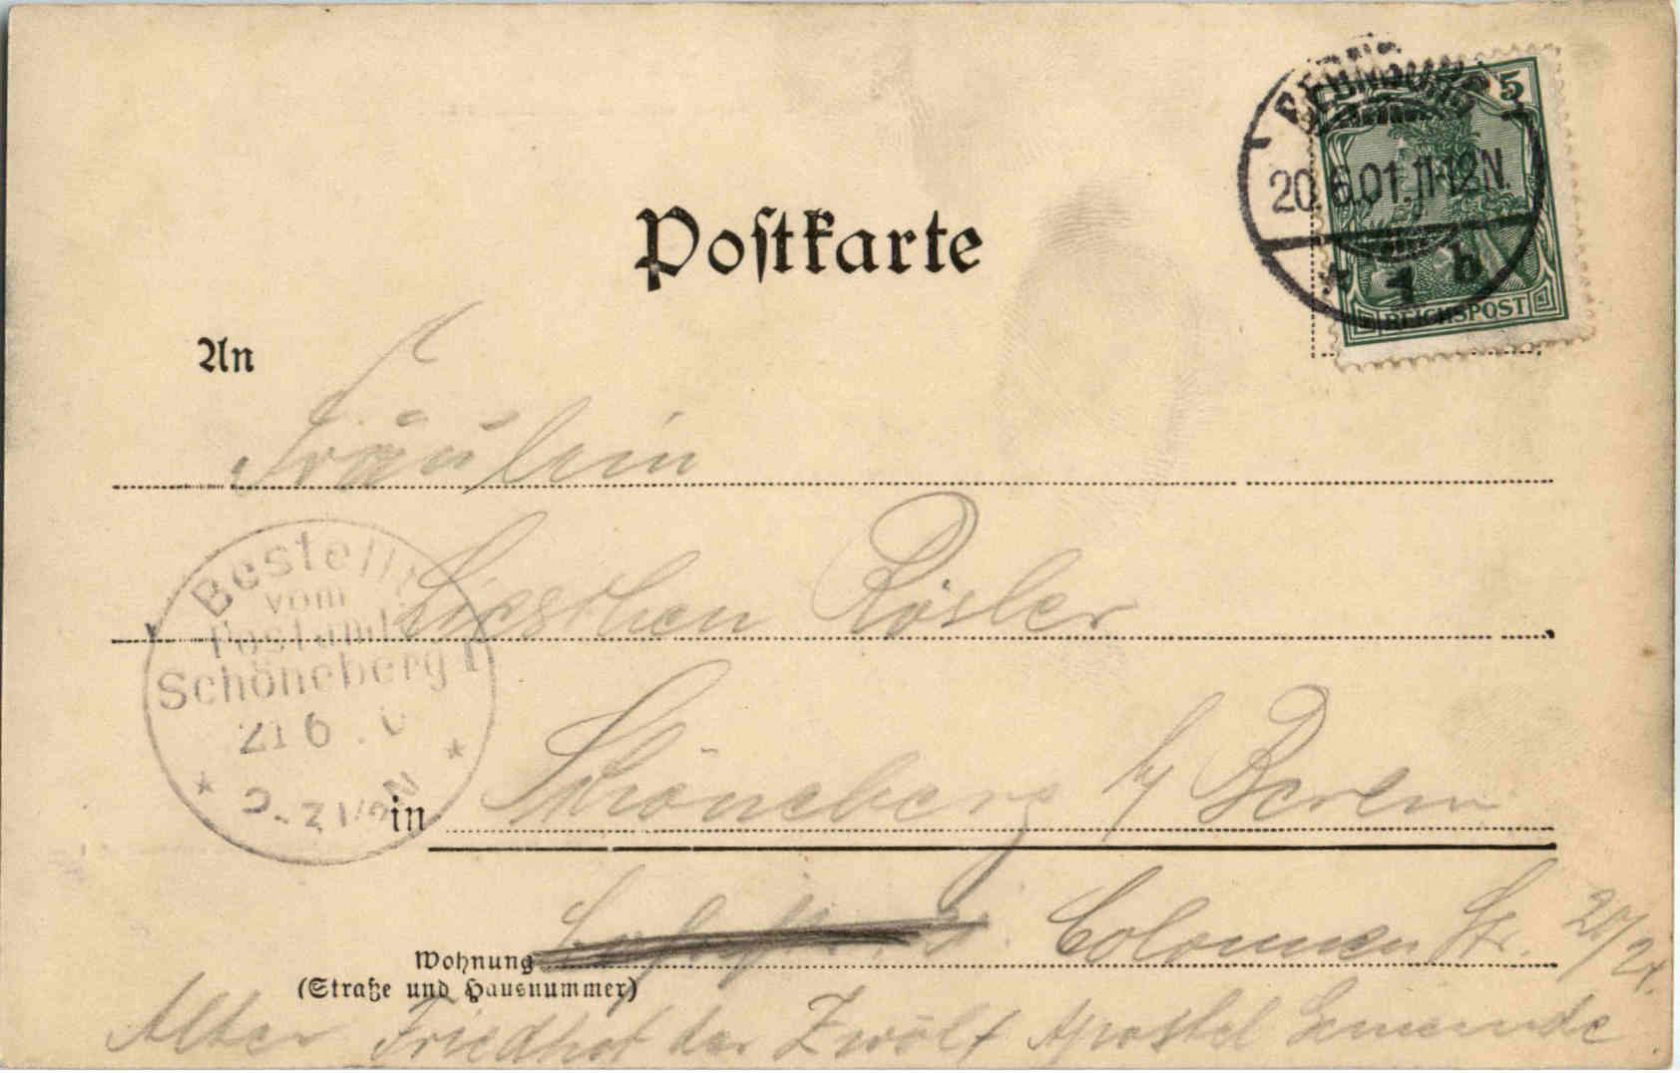 BERNBURG
5
20.6.01.11-12N.
* 1 b
REICHSPOST
Postkarte
An
Fräulein
Lieschen Rösler
Bestellt
vom
Postamte
Schöneberg 1
21 6
in Schöneberg b/ Berlin
Wohnung
(Straße und Hausnummer)
Colonnen Str. 20/21.
Alter Friedhof der Zwölf Apostel Gemeinde